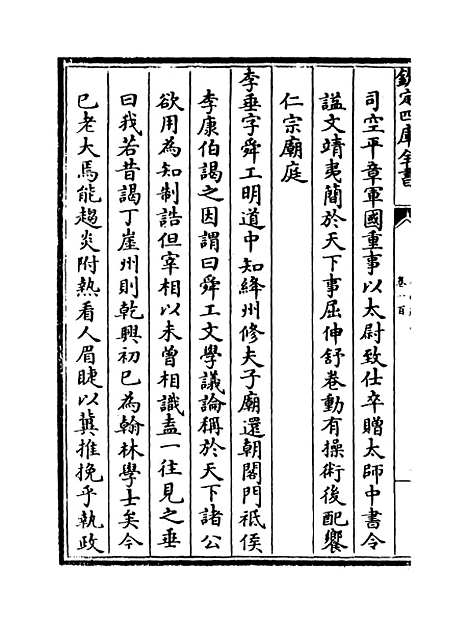 欽定四庫全書
卷一百
司空平章軍國重事以太尉致仕卒贈太師中書令
謚文靖夷簡於天下事屈伸舒卷動有操術後配饗
仁宗廟庭
李垂字舜工明道中知絳州修夫子廟還朝閤門祗候
李康伯謁之因謂曰舜工文學議論稱於天下諸公
欲用為知制誥但宰相以未曾相識盍一往見之垂
曰我若昔謁丁崖州則乾興初已為翰林學士矣今
已老大焉能趨炎附熱看人眉睫以冀推挽乎執政